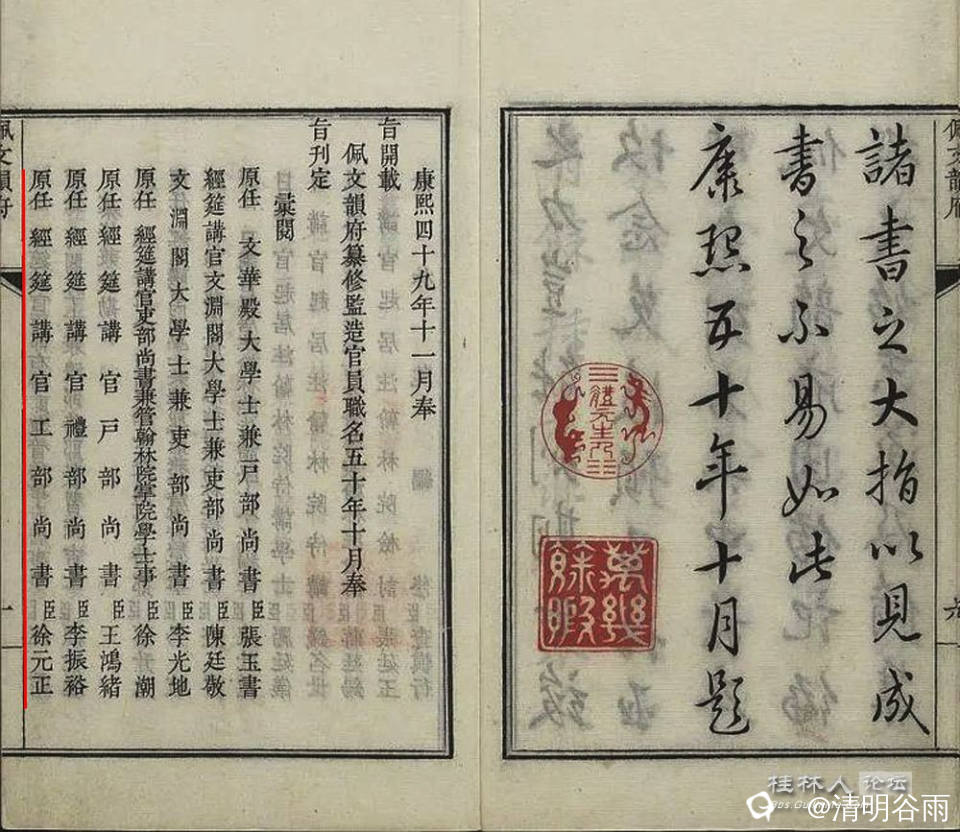 諸書之大指以見成
書之不易如此
康熙五十年十月題
體元主人
萬幾餘暇
佩文韻府
康熙四十九年十一月奉
旨開載
佩文韻府纂修監造官員職名五十年十月奉
旨刊定
彙閱
原任 文華殿大學士兼戶部尚書臣張玉書
經筵講官文淵閣大學士兼吏部尚書臣陳廷敬
文淵閣大學士兼吏部尚書臣李光地
原任 經筵講官吏部尚書兼管翰林院掌院學士事臣徐潮
原任 經筵講官戶部尚書臣王鴻緒
原任 經筵講官禮部尚書臣李振裕
原任 經筵講官工部尚書臣徐元正
佩文韻府
一
桂林人论坛
@清明谷雨